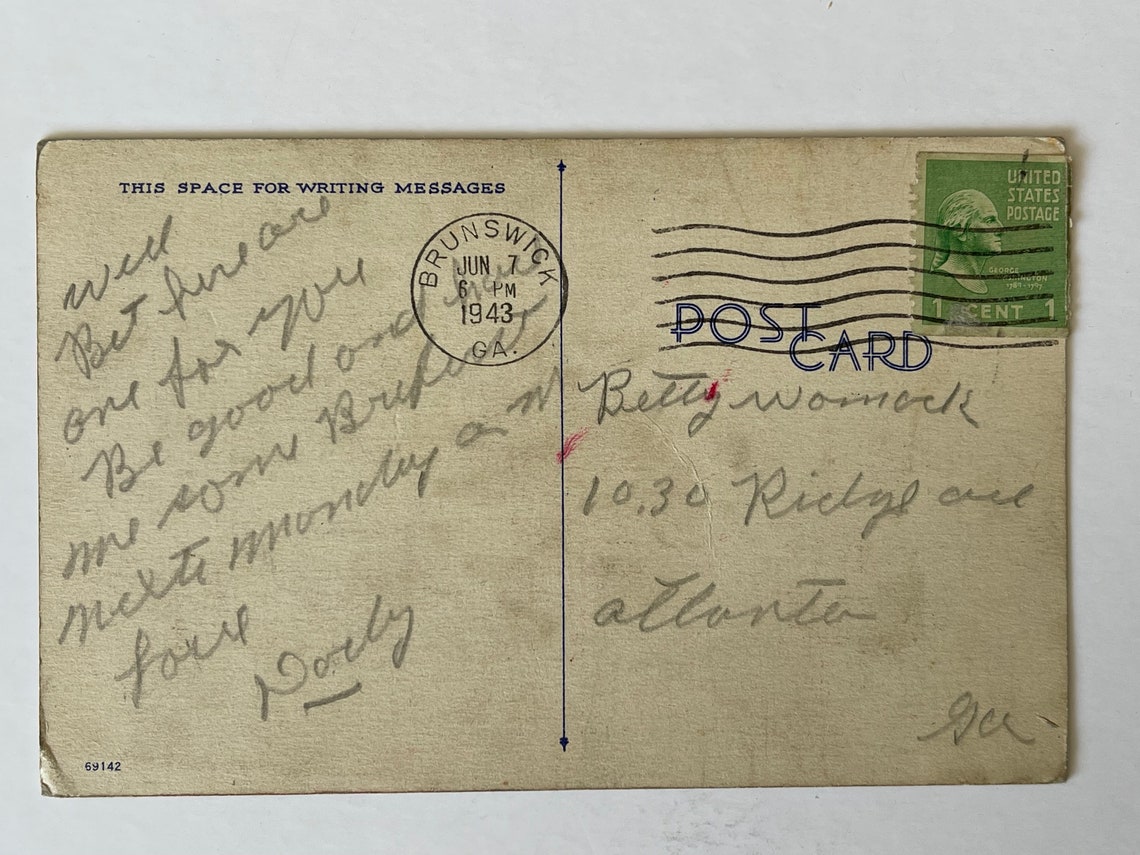 THIS SPACE FOR WRITING MESSAGES
Well
Bet here are
one for you
Be good and have
me some
next monday
love
BRUNSWICK
JUN 7
6 PM
1943
GA.
UNITED
STATES
POSTAGE
GEORGE
WASHINGTON
1789-1797
1 CENT 1
POST
CARD
Betty womack
1030 Ridge ave
atlanta
Ga
69142